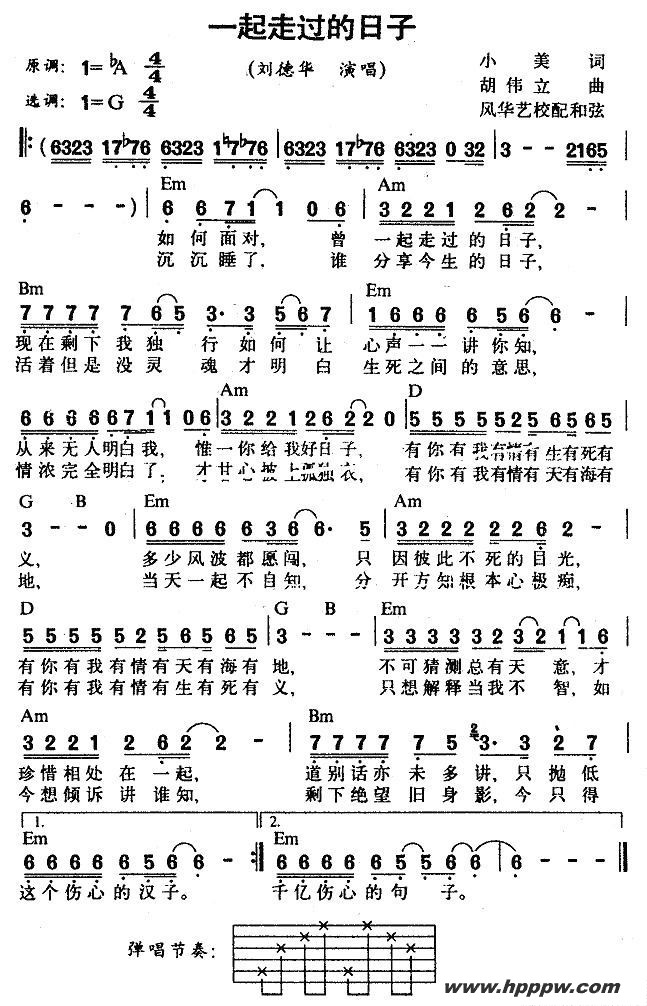 一起走过的日子
原调：1=♭A 4/4
（刘德华 演唱）
小美 词
胡伟立 曲
选调：1=G 4/4
风华艺校配和弦
（6323 17♭76 6323 1♮7♭76 | 6323 17♭76 6323 0 32 | 3 - - 2165 |
Em Am
6 - - -） | 6 6 71 1 0 6 | 3 2 2 1 2 62 2 - |
如何面对，曾一起走过的日子，
沉沉睡了，谁分享今生的日子，
Bm Em
7 7 7 7 7 65 3· 3 56 7 | 1 6 6 6 6 56 6 - |
现在剩下我独行如何让心声一一讲你知，
活着但是没灵魂才明白生死之间的意思，
Am D
6 6 6 6 671 1 06 | 3 2 2 1 26 2 2 0 | 5 5 5 5 52 56 565
从来无人明白我，惟一你给我好日子，有你有我有情有生有死有
情浓完全明白了，才甘心披上孤独衣，有你有我有情有天有海有
G B Em Am
3 - - 0 | 6 6 6 6 6 36 6· 5 | 3 2 2 2 2 26 2 - |
义，多少风波都愿闯，只因彼此不死的目光，
地，当天一起不自知，分开方知根本心极痴，
D G B Em
5 5 5 5 52 56 5 65 | 3 - - - | 3 3 3 3 32 321 1 6 |
有你有我有情有天有海有地，不可猜测总有天意，才
有你有我有情有生有死有义，只想解释当我不智，如
Am Bm
3 2 2 1 2 62 2 - | 7 7 7 7 7 5 3· 3 2 7 |
珍惜相处在一起，道别话亦未多讲，只抛低
今想倾诉讲谁知，剩下绝望旧身影，今只得
1. 2.
Em Em
6 6 6 6 6 56 6 - :‖ 6 6 6 6 65 56 6 - | 6 - - - ‖
这个伤心的汉子。千亿伤心的句子。
弹唱节奏：
www.hpppw.com